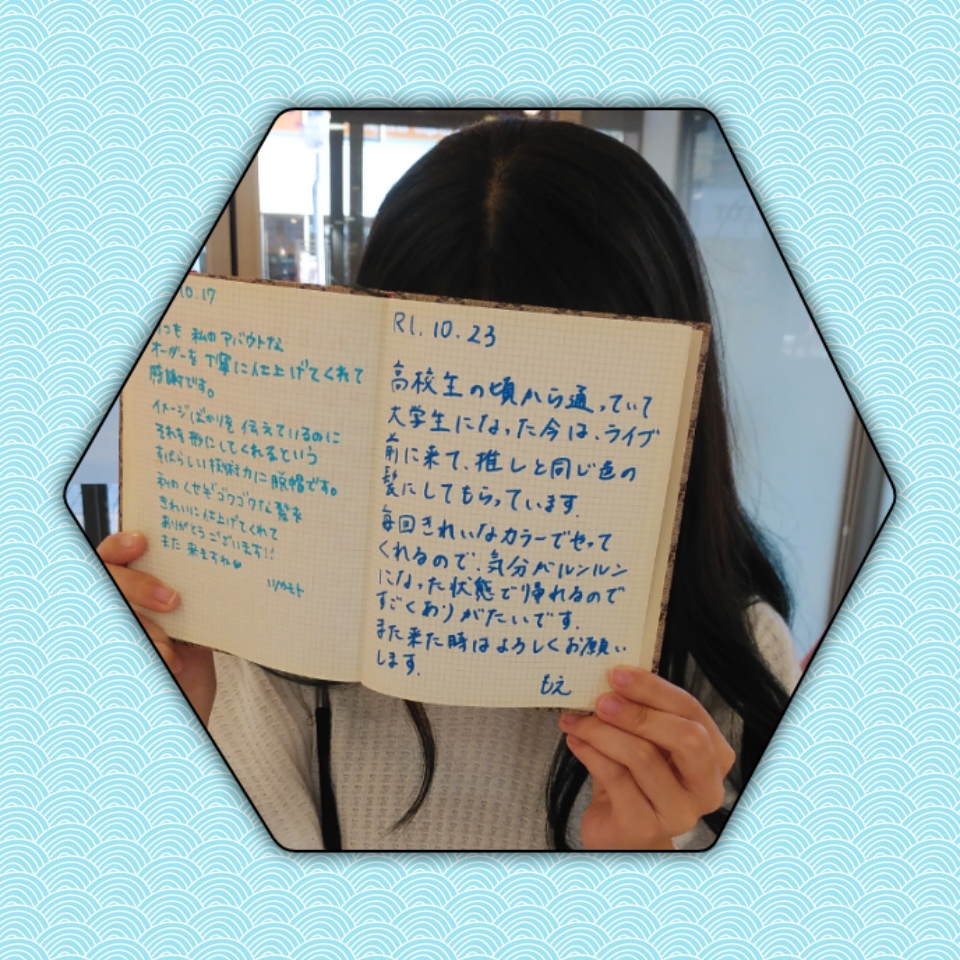 10.17
いつも 私のアバウトな
オーダーを丁寧に仕上げてくれて
感謝です。
イメージばかりを伝えているのに
それを形にしてくれるという
すばらしい技術力に脱帽です。
私のくせぞゴワゴワな髪を
きれいに仕上げてくれて
ありがとうございます!!
また来ますね♥
R1.10.23
高校生の頃から通っていて
大学生になった今は、ライブ
前に来て、推しと同じ色の
髪にしてもらっています。
毎回きれいなカラーでせって
くれるので、気分がルンルン
になった状態で帰れるので
すごくありがたいです。
また来た時はよろしくお願い
します。
もえ